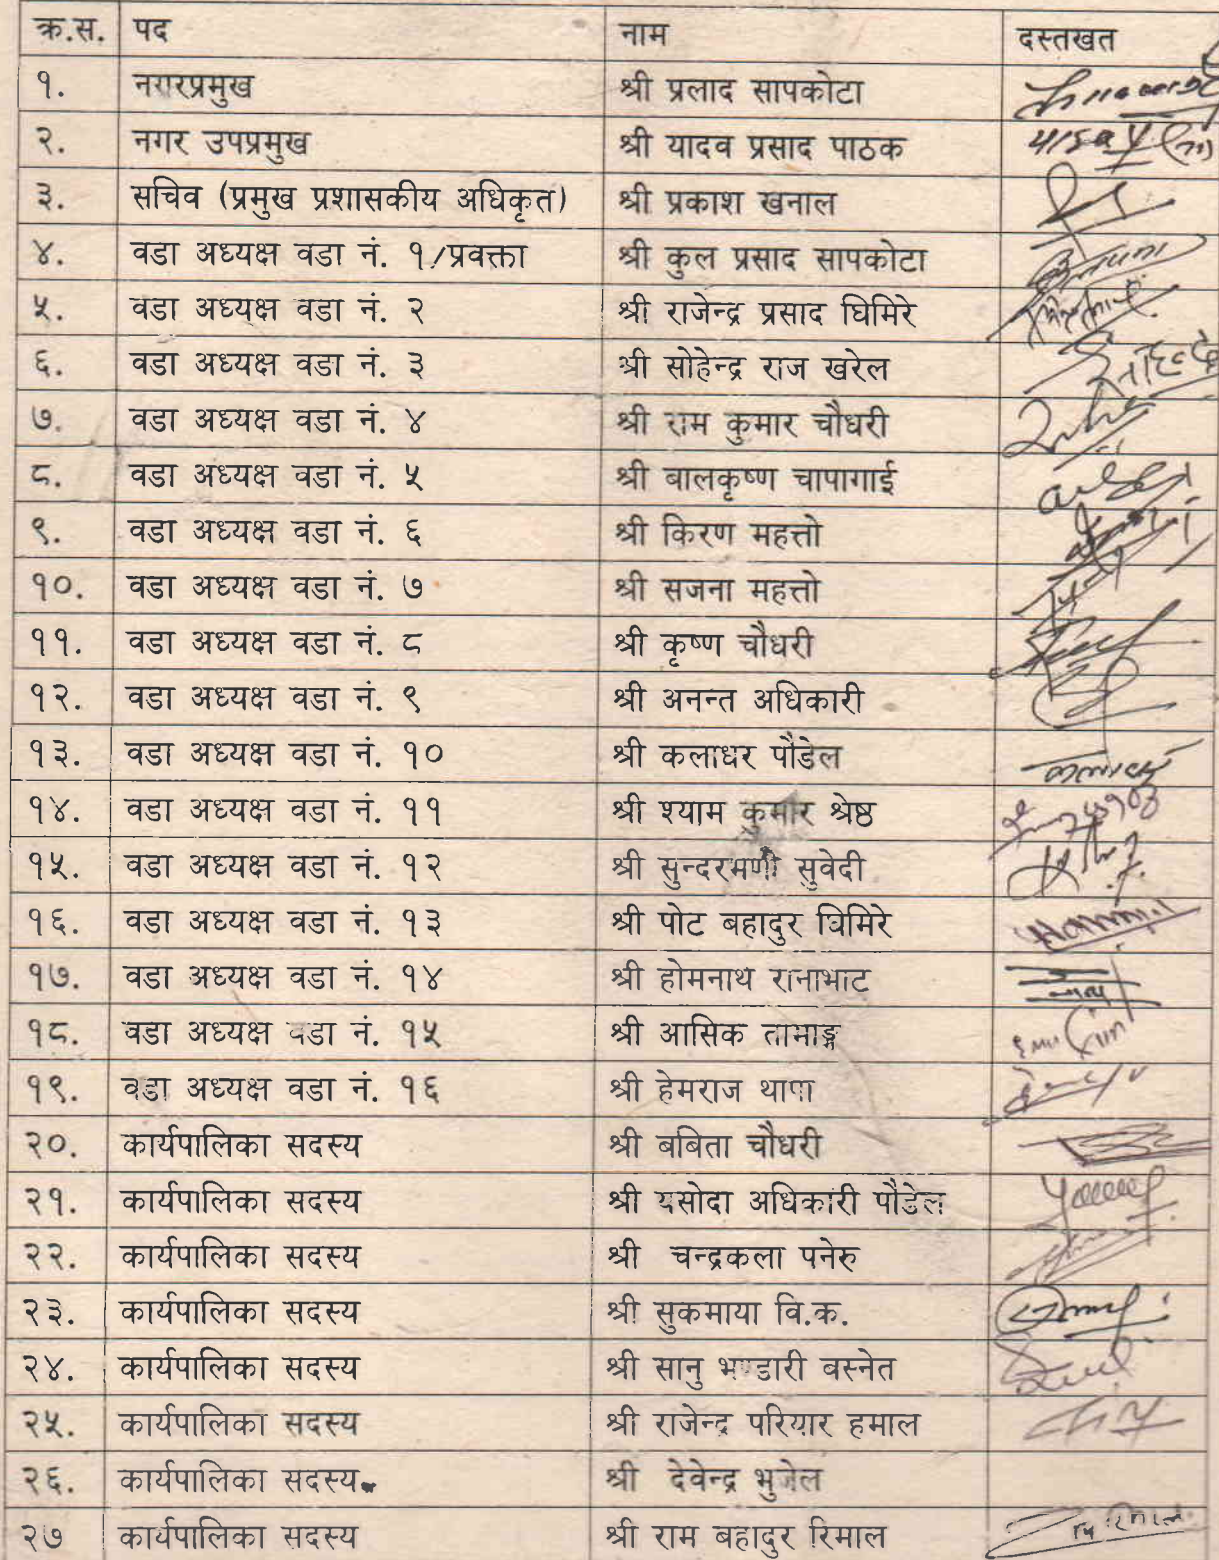 क्र.स. पद नाम दस्तखत
१. नगरप्रमुख श्री प्रलाद सापकोटा
२. नगर उपप्रमुख श्री यादव प्रसाद पाठक
३. सचिव (प्रमुख प्रशासकीय अधिकृत) श्री प्रकाश खनाल
४. वडा अध्यक्ष वडा नं. १/प्रवक्ता श्री कुल प्रसाद सापकोटा
५. वडा अध्यक्ष वडा नं. २ श्री राजेन्द्र प्रसाद घिमिरे
६. वडा अध्यक्ष वडा नं. ३ श्री सोहेन्द्र राज खरेल
७. वडा अध्यक्ष वडा नं. ४ श्री राम कुमार चौधरी
८. वडा अध्यक्ष वडा नं. ५ श्री बालकृष्ण चापागाई
९. वडा अध्यक्ष वडा नं. ६ श्री किरण महत्तो
१०. वडा अध्यक्ष वडा नं. ७ श्री सजना महत्तो
११. वडा अध्यक्ष वडा नं. ८ श्री कृष्ण चौधरी
१२. वडा अध्यक्ष वडा नं. ९ श्री अनन्त अधिकारी
१३. वडा अध्यक्ष वडा नं. १० श्री कलाधर पौडेल
१४. वडा अध्यक्ष वडा नं. ११ श्री श्याम कुमार श्रेष्ठ
१५. वडा अध्यक्ष वडा नं. १२ श्री सुन्दरमणी सुवेदी
१६. वडा अध्यक्ष वडा नं. १३ श्री पोट बहादुर घिमिरे
१७. वडा अध्यक्ष वडा नं. १४ श्री होमनाथ रानाभाट
१८. वडा अध्यक्ष वडा नं. १५ श्री आसिक तामाङ्ग
१९. वडा अध्यक्ष वडा नं. १६ श्री हेमराज थापा
२०. कार्यपालिका सदस्य श्री बबिता चौधरी
२१. कार्यपालिका सदस्य श्री यसोदा अधिकारी पौडेल
२२. कार्यपालिका सदस्य श्री चन्द्रकला पनेरु
२३. कार्यपालिका सदस्य श्री सुकमाया वि.क.
२४. कार्यपालिका सदस्य श्री सानु भण्डारी बस्नेत
२५. कार्यपालिका सदस्य श्री राजेन्द्र परियार हमाल
२६. कार्यपालिका सदस्य श्री देवेन्द्र भुजेल
२७ कार्यपालिका सदस्य श्री राम बहादुर रिमाल